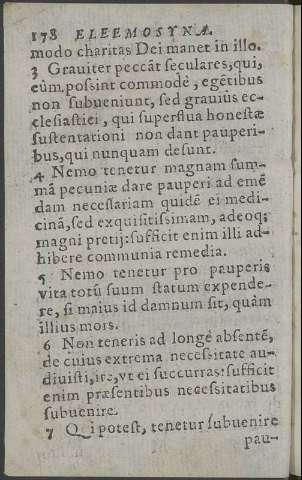 178 ELEEMOSYNA.
modo charitas Dei manet in illo.
3 Grauiter peccāt seculares, qui,
cùm possint commodè, egētibus
non subueniunt, sed grauius ec-
clesiastici, qui superflua honestæ
sustentationi non dant pauperi-
bus, qui nunquam desunt.
4 Nemo tenetur magnam sum-
mā pecuniæ dare pauperi ad emē
dam necessariam quidē ei medi-
cinā, sed exquisitissimam, adeoq;
magni pretij: sufficit enim illi ad-
hibere communia remedia.
5 Nemo tenetur pro pauperis
vita totū suum statum expende-
re, si maius id damnum sit, quàm
illius mors.
6 Non teneris ad longè absentē,
de cuius extrema necessitate au-
diuisti, ire, vt ei succurras: sufficit
enim præsentibus necessitatibus
subuenire.
7 Qui potest, tenetur subuenire
pau-